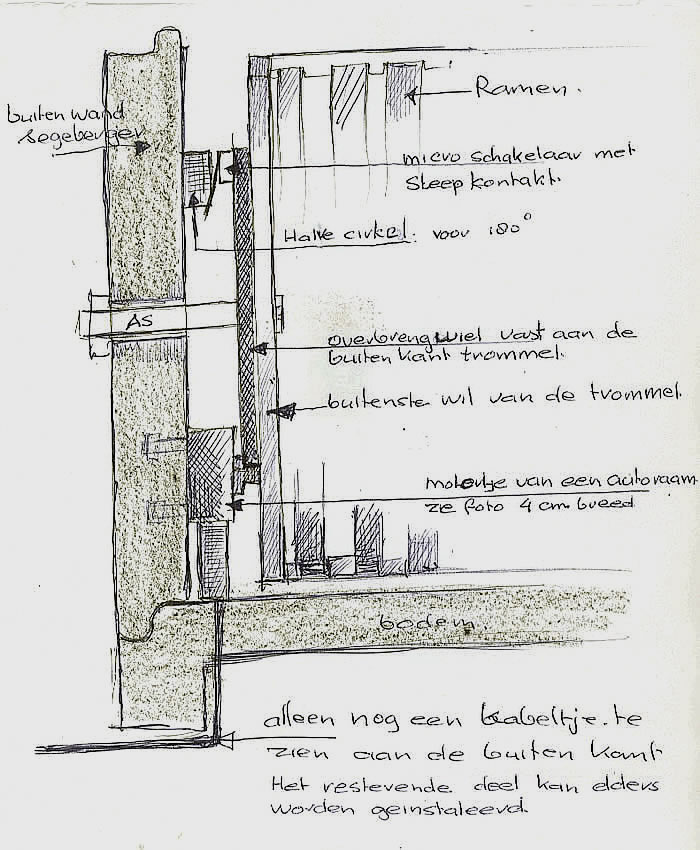 buiten wand
Segeberger
Ramen.
micro schakelaar met
Sleepkontakt.
Halve cirkel. voor 180°
AS
overbrengwiel vast aan de
buiten kant trommel.
buitenste wil van de trommel.
motortje van een autoraam
zie foto 4 cm breed
bodem.
alleen nog een kabeltje. te
zien aan de buiten kant
Het resterende deel kan elders
worden geinstaleerd.